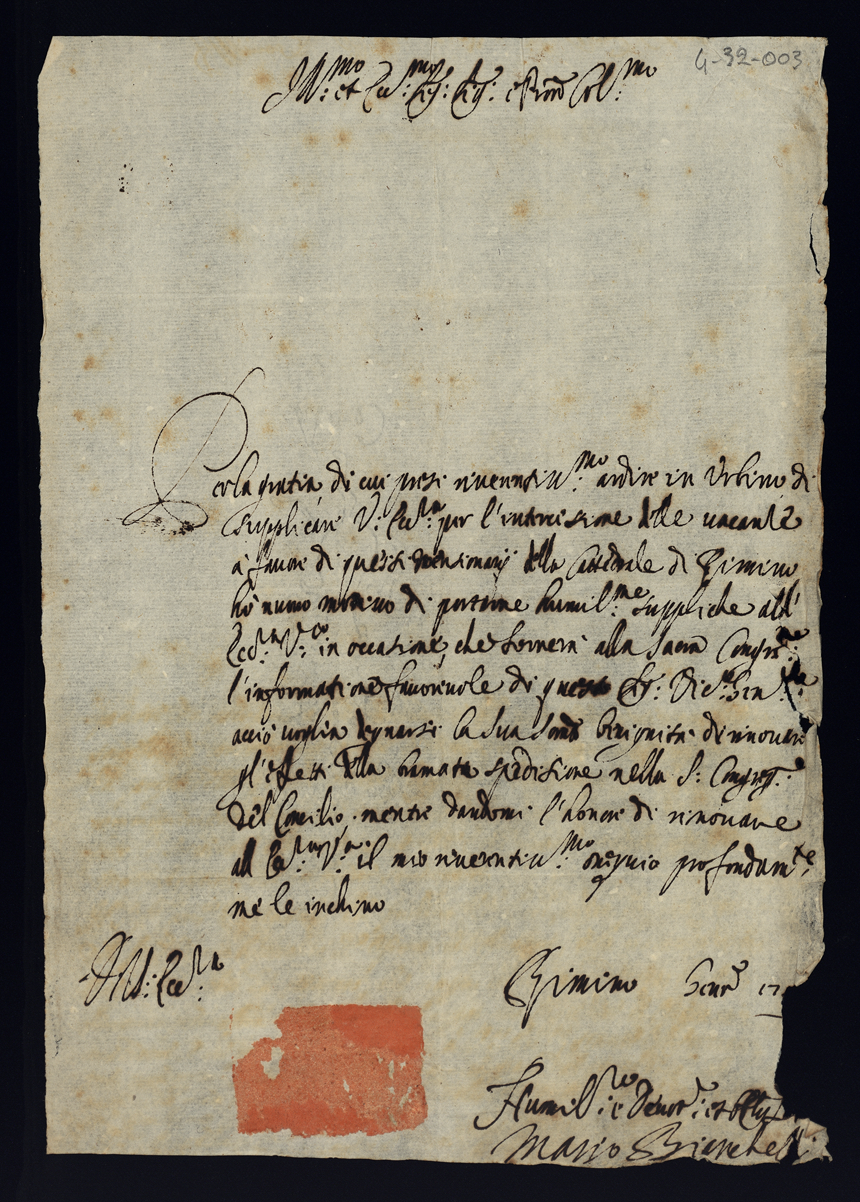 4-32-003
Ill:mo et Ecc:mo Sig: Sig: e Pron Col:mo
Per la gratia di cui presi riverentiss:mo ardire in Urbino di
supplicare V: Ecc:a per l'intercessione delle vacanze
à favore di questi mansionarij della Catedrale di Rimino
hò nuovo motivo di portarne humil:me suppliche all'
Ecc:a V:a in occasione, che tornerà alla Sacra Congr:ne
l'informatione favorevole di questo Sig:
acciò voglia degnarsi la sua somma benignità di rinovare
gl'effetti della bramata speditione nella S: Congreg:ne
del Concilio. mentre dandomi l'honore di rinovare
all' Ecc:a V:a il mio riverentiss:mo ossequio profondam:te
me le inchino
Ill: Ecc:a
Rimino
Humil: e Devot: et Obl
Mario Bianchelli